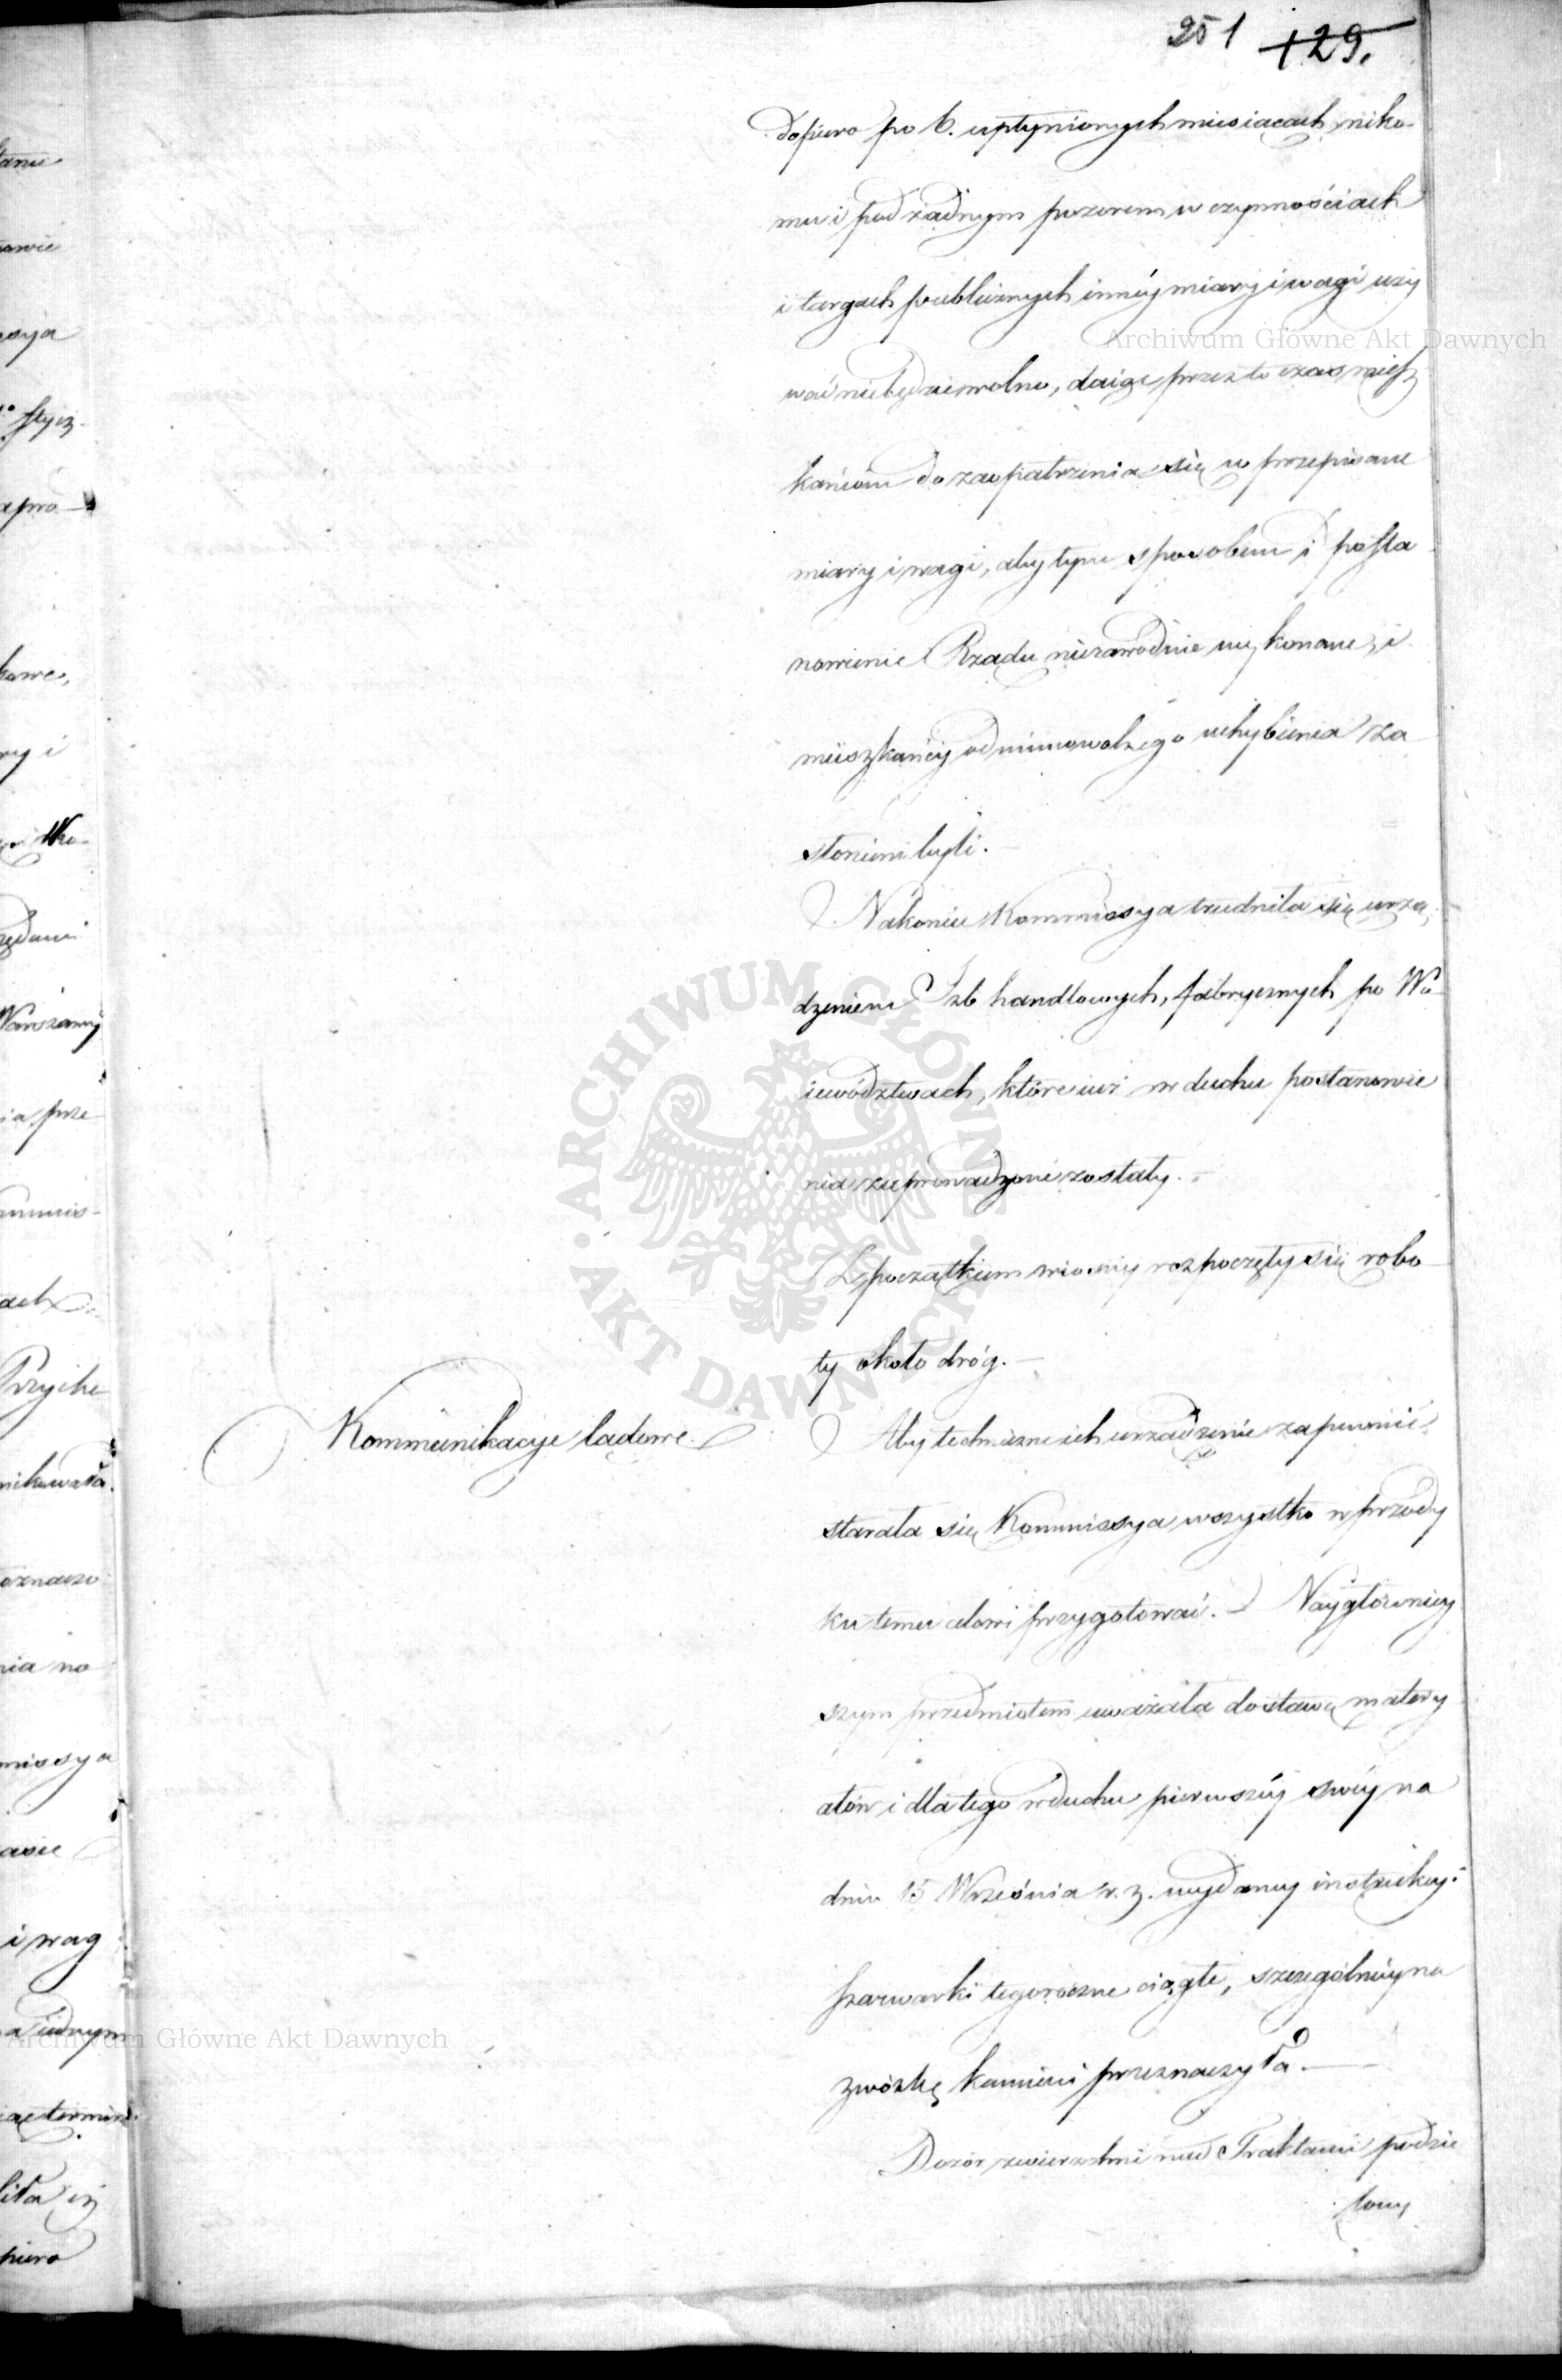 251 129.
dopiero po 6. upłynionych miesiącach niko-
mu i pod żadnym pozorem w czynnościach
i targach publicznych innéy miary i wagi uży
wać niebędzie wolno, daiąc przez to czas miesz
kańcom do zaopatrzenia się w przepisane
miary i wagi, aby tym sposobem i posta
nowienie Rządu niezawodnie wykonane, i
mieszkańcy od mimowolnego uchybienia za
słonieni byli.
Nakoniec Kommissya trudniła się urzą
dzeniem Izb handlowych, fabrycznych po Wo
iewództwach, które iuż w duchu postanowie
nia zaprowadzone zostały.
Z początkiem wiosny rozpoczęły się robo
ty około dróg.
Kommunikacye lądowe.
Aby techniczne ich urządzenie zapewnić
starała się Kommissya wszystko wprzódy
ku temu celowi przygotować. Naygłówniey
szym przedmiotem uważała dostawę matery
ałów i dla tego w duchu pierwszéy swéy na
dniu 15 Września r. z. wydaney instrukcyi
szarwarki tegoroczne ciągłe, szczególniey na
zwózkę kamieni przeznaczyła.
Dozór zwierzchni nad Traktami podzie
lony
Archiwum Główne Akt Dawnych
ARCHIWUM GŁÓWNE AKT DAWNYCH
Archiwum Główne Akt Dawnych